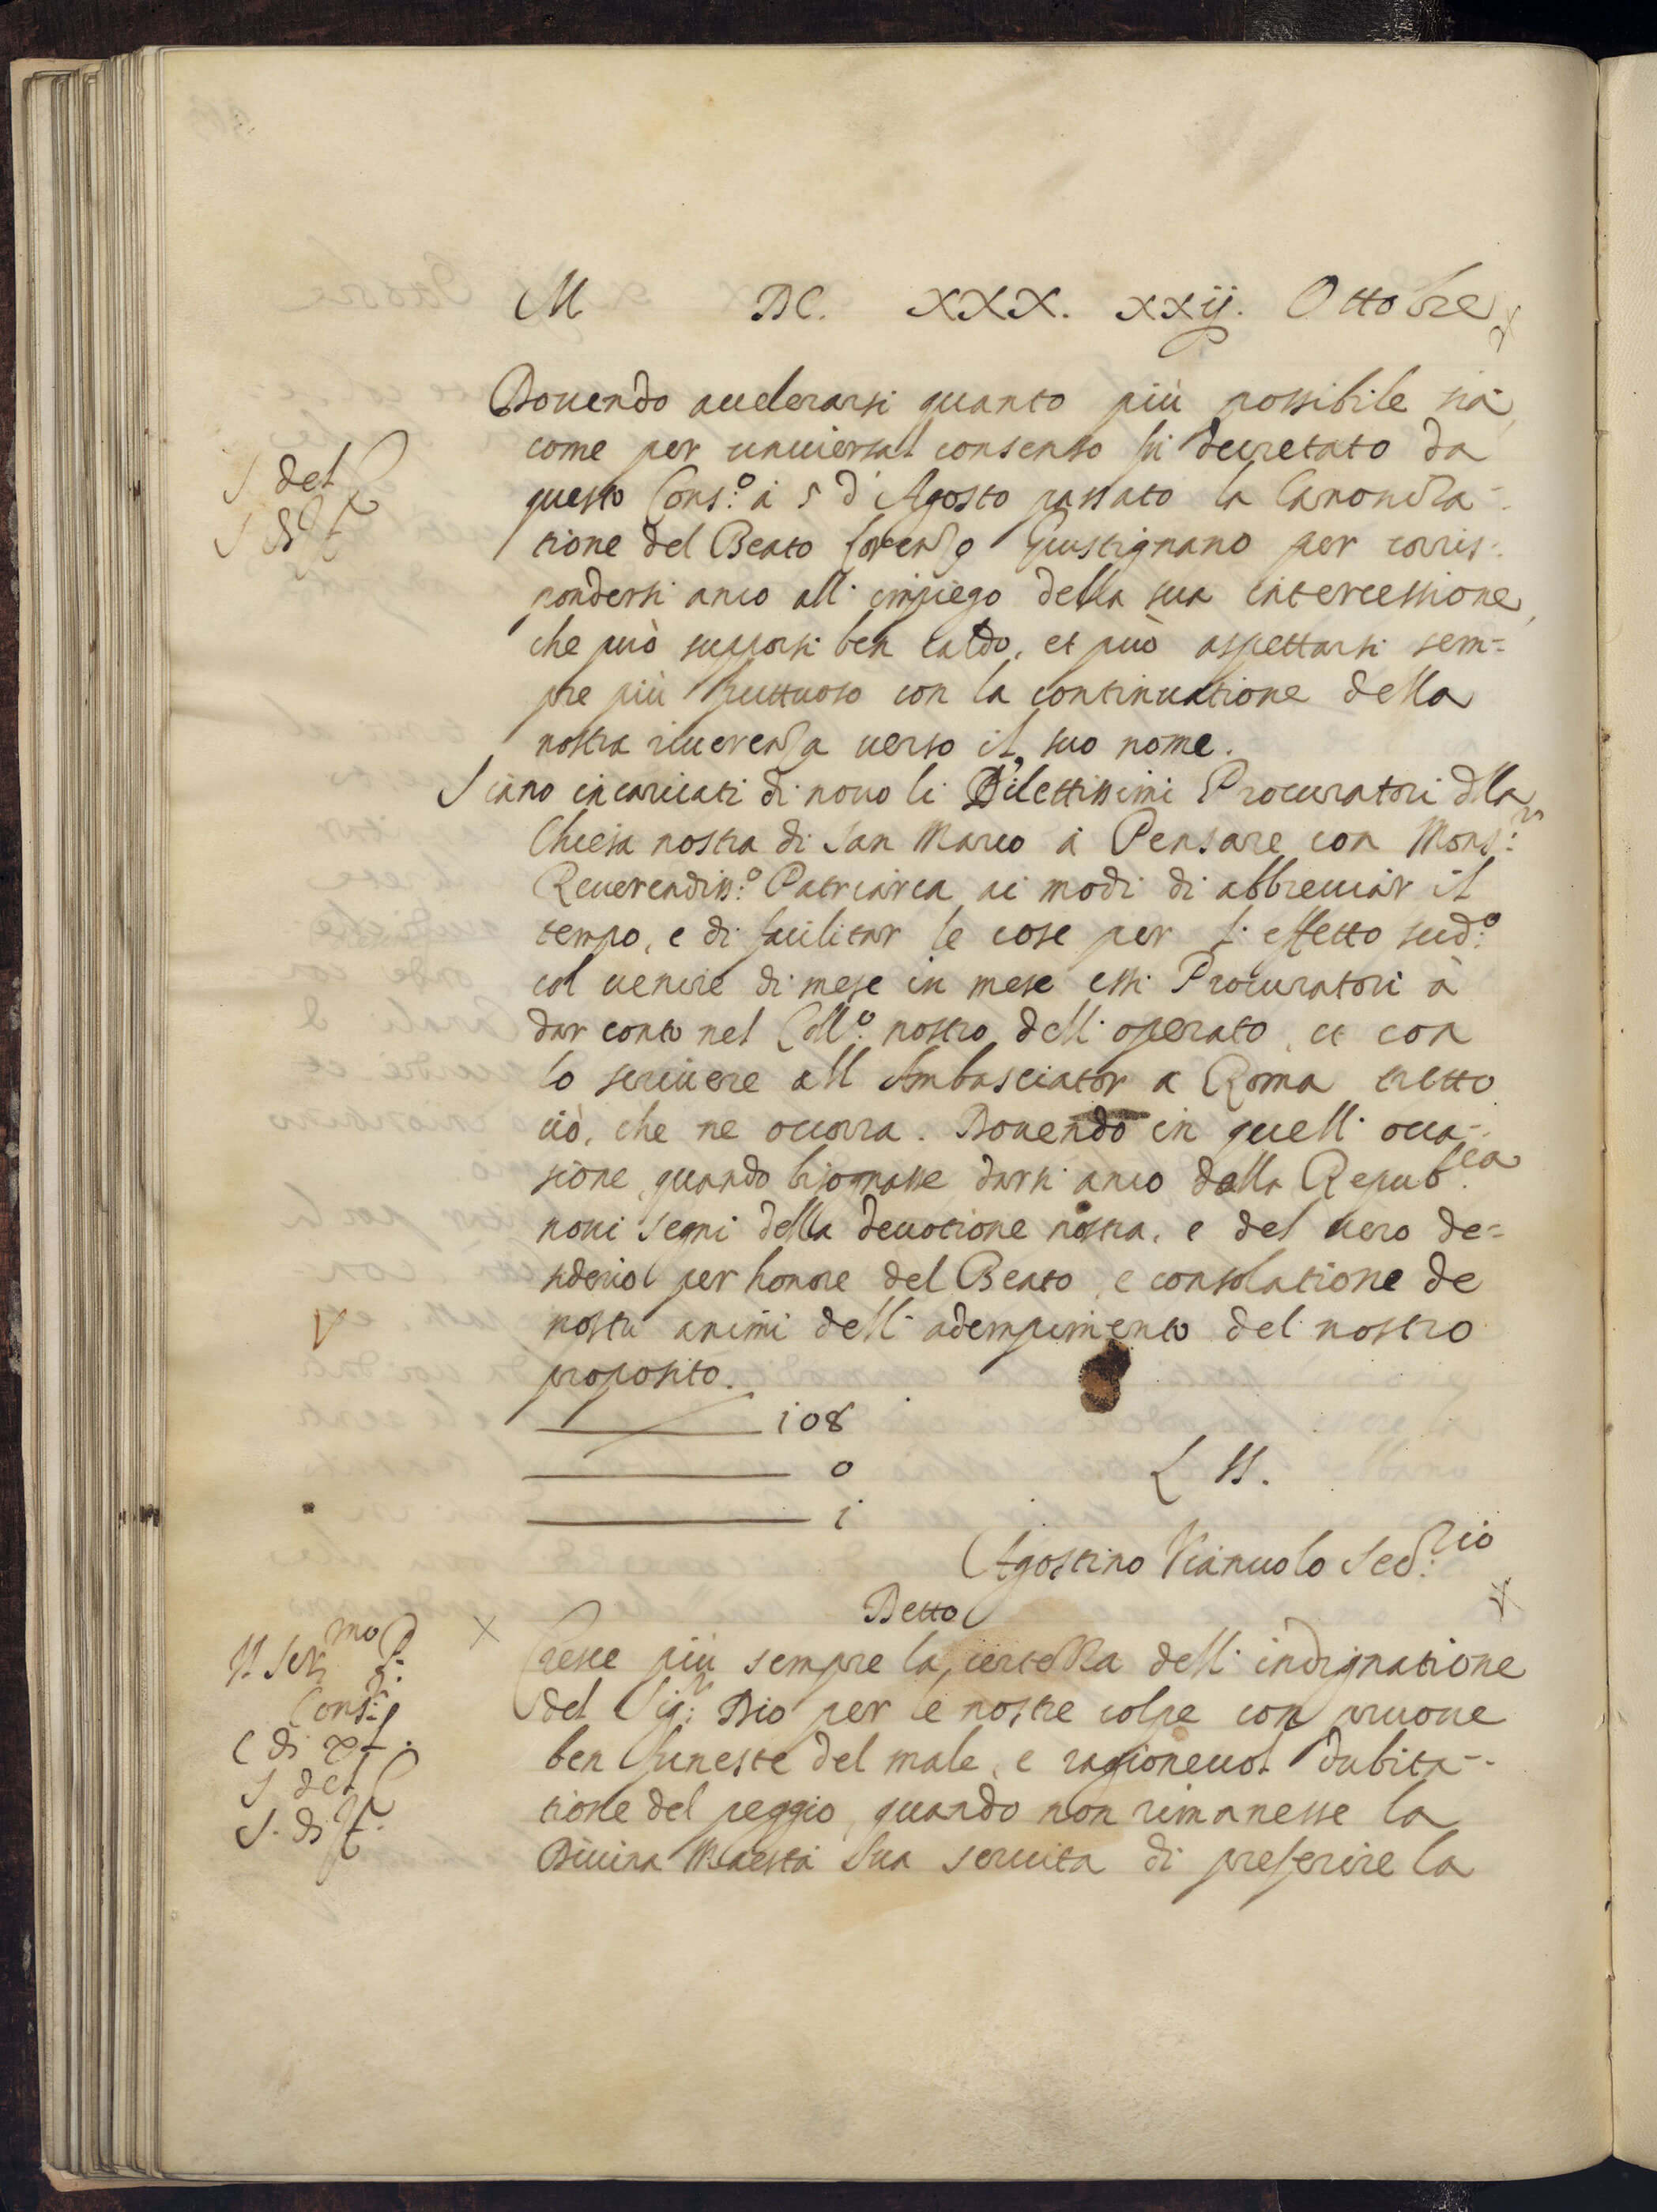 M DC. XXX. xxij. Ottobre
Douendo accelerarsi quanto più possibile sia,
come per uniuersal consenso fù decretato da
questo Cons:º à 5 d' Agosto passato la Canoniza-
tione del Beato Lorenzo Giustignano per corris-
pondersi anco all' impiego della sua intercessione,
che può supporsi ben caldo, et può aspettarsi sem=
pre più fruttuoso con la continuatione della
nostra riuerenza uerso il suo nome.
Siano incaricati di nouo li Dilettissimi Procuratori dlla
Chiesa nostra di San Marco à Pensare con Mons:r
Reuerendiss:º Patriarca ai modi di abbreuiar il
tempo, e di facilitar le cose per l' effetto sud:º
col uenire di mese in mese essi Procuratori à
dar conto nel Coll:º nostro dell' operato, et con
lo scriuere all Ambasciator a Roma tutto
ciò, che ne occorra. Douendo in quell' occa-
sione, quando bisognasse darsi anco dalla Repub:ca
noui segni della deuotione nostra, e del uero de=
siderio per honore del Beato, e consolatione de
nostri animi dell' adempimento del nostro
proposito.
108
0
i
L SS.
Agostino Vianuolo Sec:rio
Detto
Cresce più sempre la certezza dell' indignatione
del Sig:r Dio per le nostre colpe con pruoue
ben funeste del male, e ragioneuol dubita-
tione del peggio, quando non rimanesse la
Diuina Maestà Sua seruita di preferire la
S del
S di
Il Ser mo P
Cons:
C di
S del
S. di